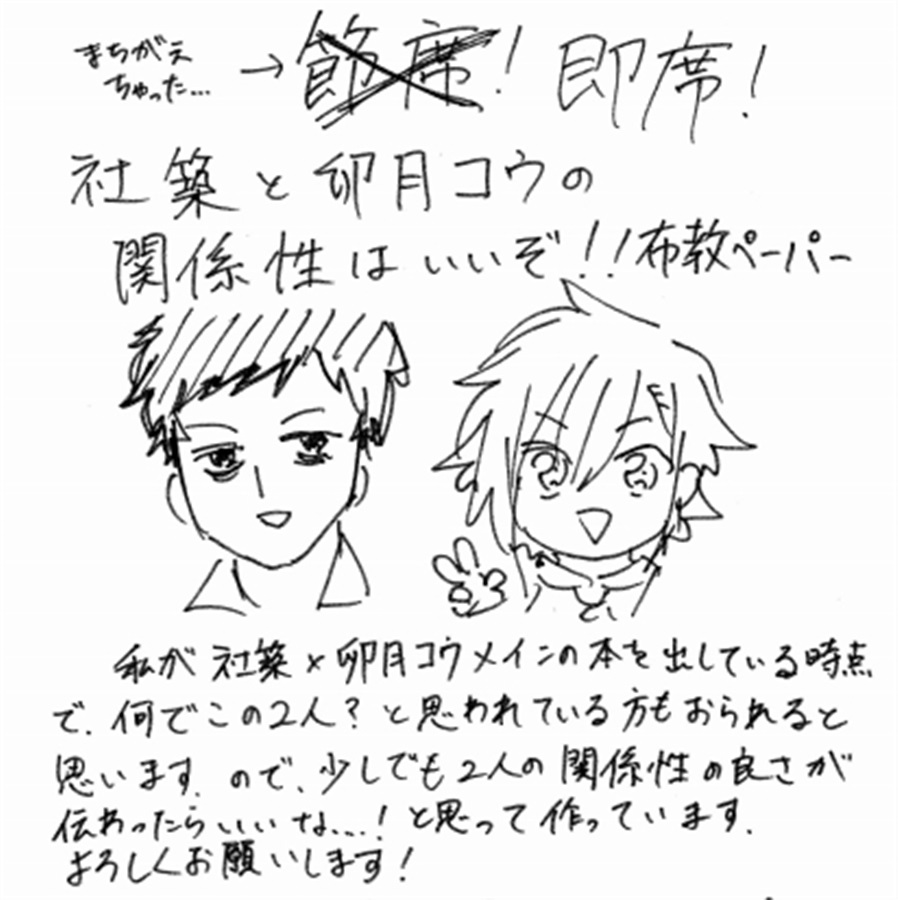 まちがえ
ちゃった…
→ 節席! 即席!
社築と卯月コウの
関係性はいいぞ!!布教ペーパー
私が社築×卯月コウメインの本を出している時点
で、何でこの2人?と思われている方もおられると
思います。ので、少しでも2人の関係性の良さが
伝わったらいいな…!と思って作っています。
よろしくお願いします!